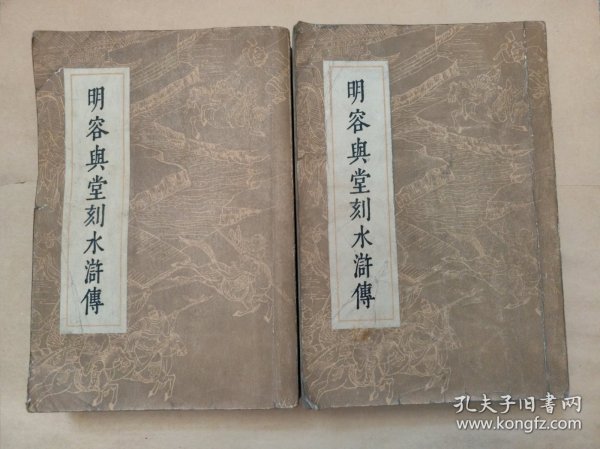 明容與堂刻水滸傳
明容與堂刻水滸傳
孔夫子旧书网
www.kongfz.com